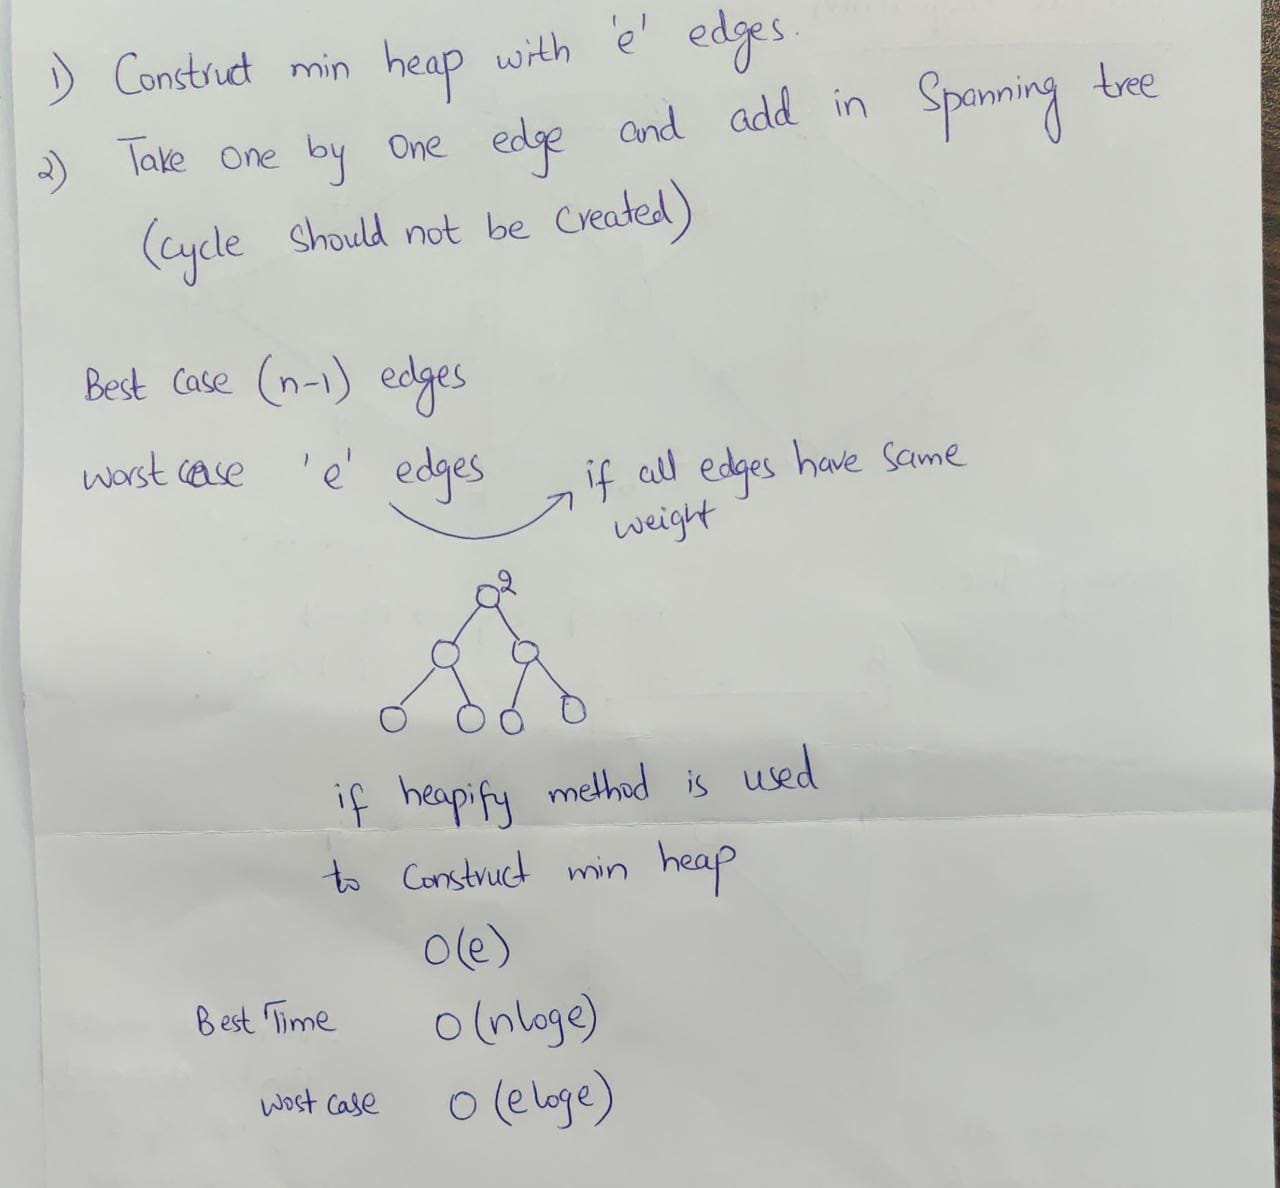 1) Construct min heap with 'e' edges.
2) Take one by one edge and add in Spanning tree
(cycle should not be created)
Best case (n-1) edges
worst case 'e' edges
if all edges have same
weight
2
if heapify method is used
to construct min heap
O(e)
Best Time O(nloge)
wost case O(eloge)